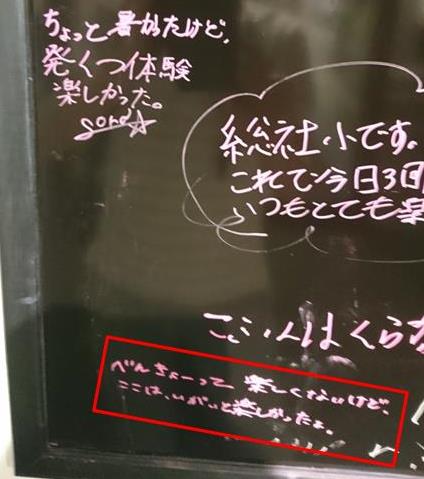 ちょっと暑かたけど、
発くつ体験
楽しかった。
総社小です。
これで今日3回
いつもとても楽
べんきょーって 楽しくないけど、
ここは、いがいと楽しかったよ。